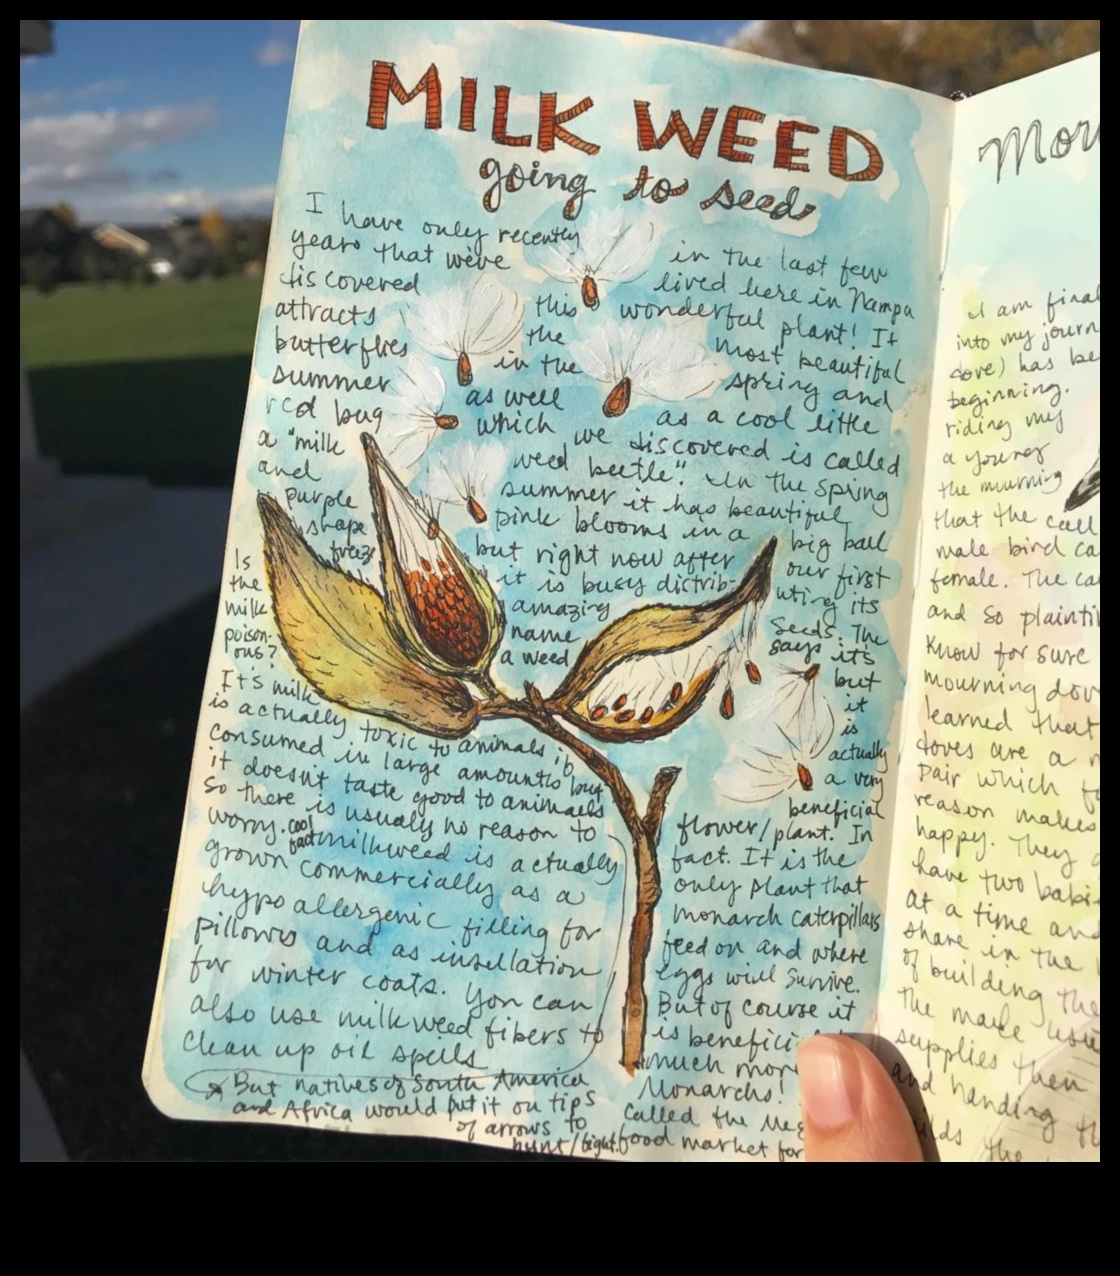 MILK WEED
going to seed
I have only recently in the last few
years that we've lived here in Nampa
discovered this wonderful plant! It
attracts the most beautiful
butterflies in the spring and
summer as well as a cool little
red bug which we discovered is called
a "milk weed beetle". In the spring
and summer it has beautiful
purple pink blooms in a big ball
shape but right now after our first
freeze it is busy distrib- uting its
amazing seeds. The
name says it's
a weed but
it
is
actually
a very
beneficial
flower/plant! In
fact. It is the
only plant that
monarch caterpillars
feed on and where
eggs will survive.
But of course it
is benefici
much mor
Monarchs!
called the
food market for
Is
the
milk
poison-
ous?
It's milk
is actually toxic to animals if
consumed in large amounts but
it doesn't taste good to animals
so there is usually no reason to
worry. cool fact milkweed is actually
grown commercially as a
hypoallergenic filling for
pillows and as insullation
for winter coats. You can
also use milkweed fibers to
clean up oil spills
But natives of South America
and Africa would put it on tips
of arrows to
hunt/fight.
Mour
I am final
into my journ
dove) has be
beginning.
riding my
a younger
the mourning
that the call
male bird ca
female. The ca
and so plainti
know for sure
mourning dov
learned that
doves are a m
pair which
reason makes
happy. They
have two babi
at a time and
share in the
of building the
The male usu
supplies them
and handing th
ilds the